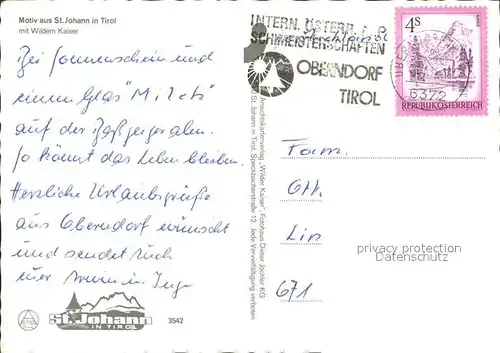 Motiv aus St. Johann in Tirol
mit Wildem Kaiser
Bei Sonnenschein und
einem Glas "Milch"
auf der Baßgeigeralm.
So könnt das Leben bleiben.
Herzliche Urlaubsgrüße
aus Oberndorf wünscht
und sendet Euch
St. Johann
IN TIROL
3542
Ansichtskartenverlag „Wilder Kaiser“, Fotohaus Dieter Jöchler KG
St. Johann in Tirol, Speckbacherstraße 12. Jede Vervielfältigung verboten
INTERN. ÖSTERR.
SCHMEISTERSCHAFTEN
OBERNDORF
TIROL
6372
4S
REPUBLIK ÖSTERREICH
Fam.
671
privacy protection
Datenschutz